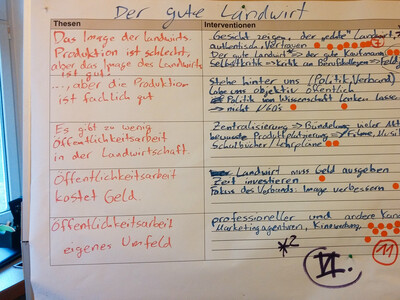 Der gute Landwirt
Thesen
Interventionen
Das Image der Landwirts.
Produktion ist schlecht,
aber das Image des Landwirts
ist gut!
..., aber die Produktion
ist fachlich gut
Gesicht zeigen, der "edle" Landwirt,
authentisch, Vertrauen
Der gute Landwirt => der gute Kaufmann
Selbstkritik => Kritik an Berufskollegen =>
stehe hinter uns (Politik, Verband)
Lobe uns objektiv öffentlich
Politik von Wissenschaft lenken lassen
→ nicht NGOs
Es gibt zu wenig
Öffentlichkeitsarbeit
in der Landwirtschaft.
Zentralisierung => Bündelung vieler
bewusste Produktplatzierung => Filme,
Schulbücher / Lehrpläne
Öffentlichkeitsarbeit
kostet Geld.
Landwirt muss Geld ausgeben
Zeit investieren
Fokus des Verbands: Image verbessern
Öffentlichkeitsarbeit
eigenes Umfeld
professioneller und andere
Marketingagenturen, Kinowerbung,
*2
VI.
11